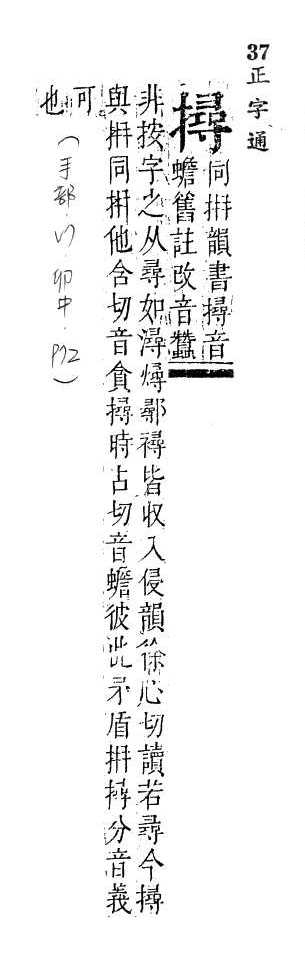 37 正字通
撏
同𢪇韻書撏音
蟾舊註改音蠶
非按字之从尋如潯燖鄩襑皆收入侵韻徐心切讀若尋今撏
與𢪇同𢪇他含切音貪撏時占切音蟾彼此矛盾𢪇撏分音義
可
也
(手部.11.卯中.P72)